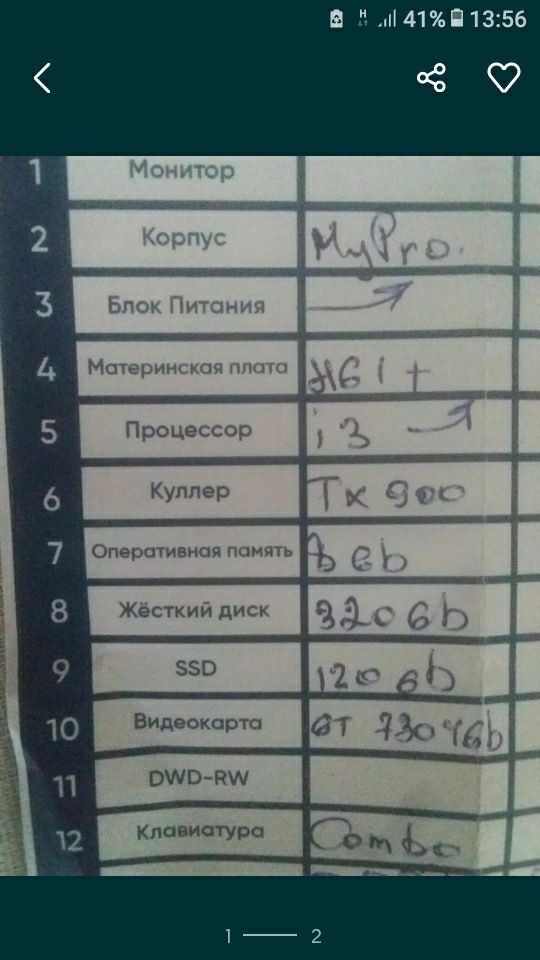 41% 13:56
1 Монитор
2 Корпус MyPro.
3 Блок Питания
4 Материнская плата H61+
5 Процессор i3
6 Куллер Tx 900
7 Оперативная память 8Gb
8 Жёсткий диск 320Gb
9 SSD 120Gb
10 Видеокарта GT 730 4Gb
11 DWD-RW
12 Клавиатура Combo
1 2